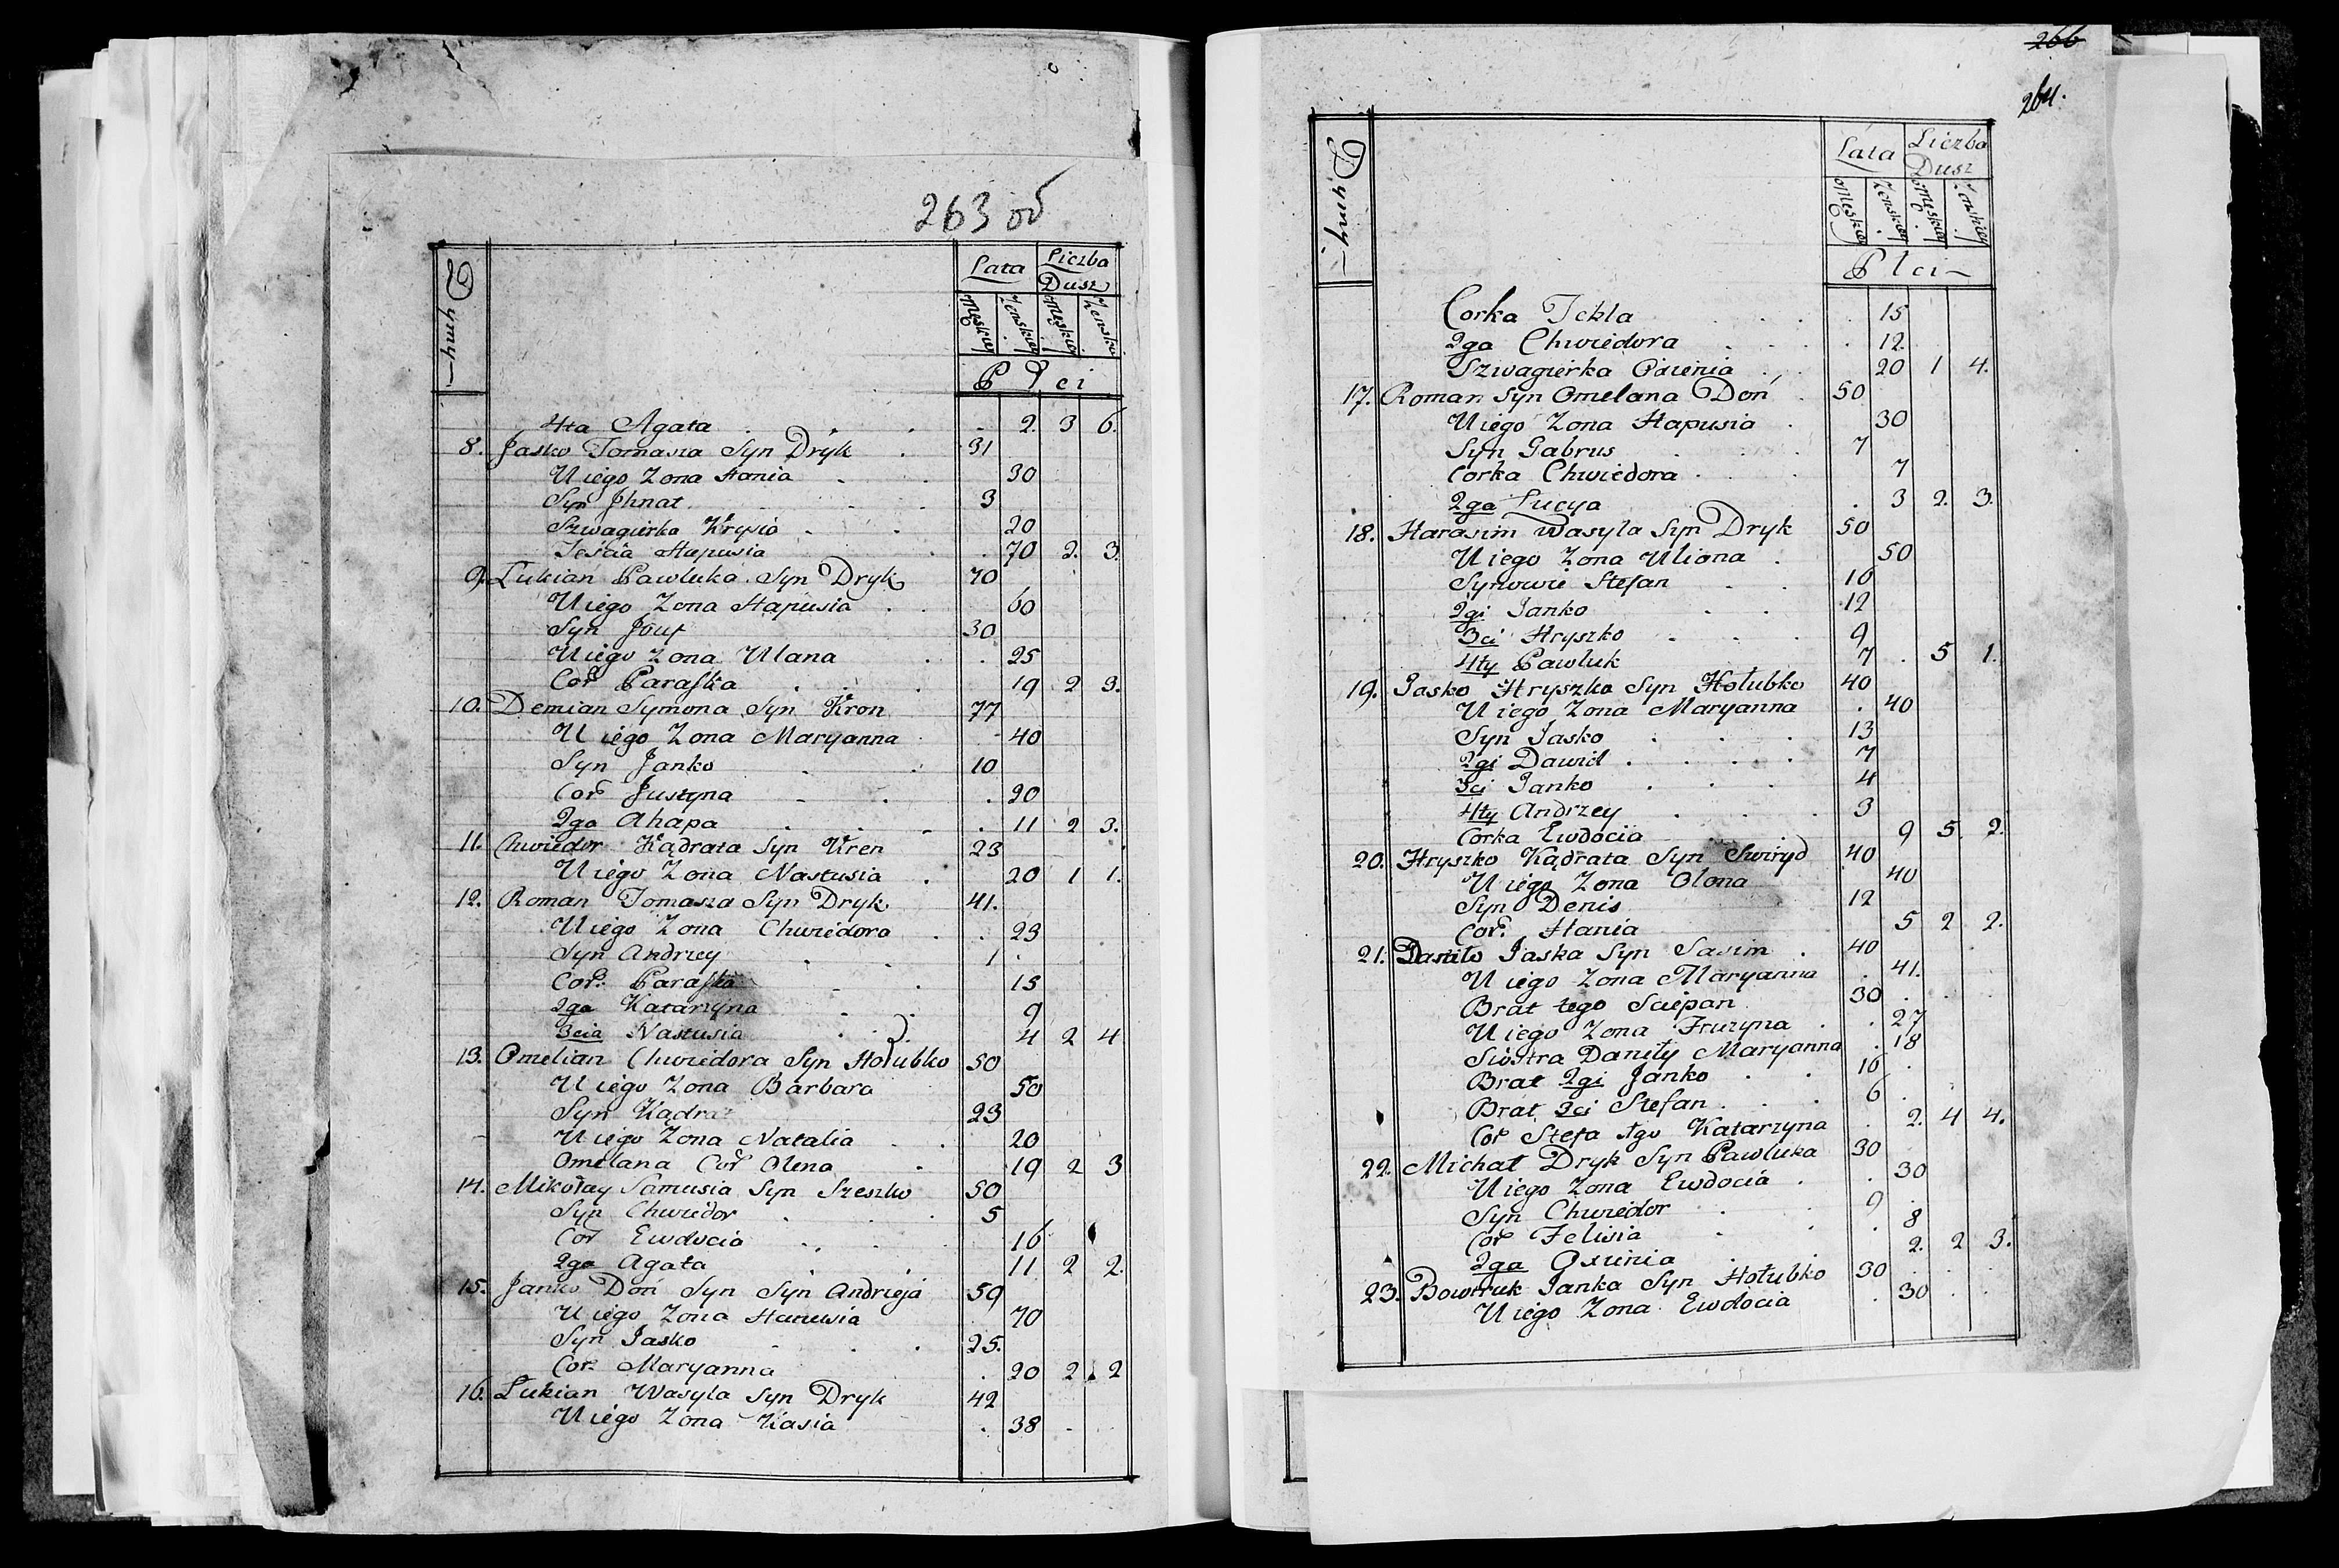 263 об
Dymy
Lata
Liczba Dusz
Męskiey
Zenskiey
Męskiey
Zenskiey
Płci
4ta Agata 2. 3 6.
8. Jasko Tomasza Syn Dryk 31
U iego Zona Hania 30
Syn Jhnat 3
Szwagierka Krysia 20
Teścia Hapusia 70 2. 3.
9. Lukian Pawluka Syn Dryk 70
U iego Zona Hapusia 60
Syn Jouf 30
U iego Zona Ulana 25
Cor Paraska 19 2 3.
10. Demian Symona Syn Kron 77
U iego Zona Maryanna 40
Syn Janko 10
Cor Justyna 20
2ga Ahapa 11 2 3.
11. Chwiedor Kądrata Syn Kren 23
U iego Zona Nastusia 20 1 1.
12. Roman Tomasza Syn Dryk 41.
U iego Zona Chwiedora 23
Syn Andrzey 1
Cor. Paraska 15
2ga Katarzyna 9
3cia Nastusia 4 2 4
13. Omelian Chwiedora Syn Hołubko 50
U iego Zona Barbara 50
Syn Kądrat 23
U iego Zona Natalia 20
Omelana Cor Olena 19 2 3
14. Mikołay Samusia Syn Szeszko 50
Syn Chwiedor 5
Cor Ewdocia 16
2ga Agata 11 2 2.
15. Janko Doń Syn Syn Andrieja 59
U iego Zona Hanusia 70
Syn Jasko 25.
Cor. Maryanna 20 2 2
16. Lukian Wasyla Syn Dryk 42
U iego Zona Kasia 38
266
264.
Dymy
Lata
Liczba Dusz
Męskiey
Zenskiey
Męskiey
Zenskiey
Płci
Corka Tekla 15
2ga Chwiedora 12
Szwagierka 20 1 4.
17. Roman Syn Omelana Doń 50
U iego Zona Hapusia 30
Syn Gabrus 7
Corka Chwiedora 7
2ga Lucya 3 2. 3.
18. Harasim Wasyla Syn Dryk 50
U iego Zona Uliona 50
Synowie Stefan 16
2gi Janko 12
3ci Hryszko 9
4ty Pawluk 7 5 1.
19. Jasko Hryszka Syn Hołubko 40
U iego Zona Maryanna 40
Syn Jasko 13
2gi Dawid 7
3ci Janko 4
4ty Andrzey 3
Corka Ewdocia 9 5. 2.
20. Hryszko Kądrata Syn Swiryd 40
U iego Zona Olona 40
Syn Denis 12
Cor. Hania 5 2 2.
21. Daniło Jaska Syn Sasim 40
U iego Zona Maryanna 41.
Brat tego Sciepan 30
U iego Zona Fruzyna 27
Siostra Daniły Maryanna 18
Brat 2gi Janko 16
Brat 2ci Stefan 6
Cor Stefa tgo Katarzyna 2. 4 4.
22. Michał Dryk Syn Pawluka 30
U iego Zona Ewdocia 30
Syn Chwiedor 9
Cor Felisia 8
2ga Oxinia 2. 2 3.
23. Bowtruk Janka Syn Hołubko 30
U iego Zona Ewdocia 30